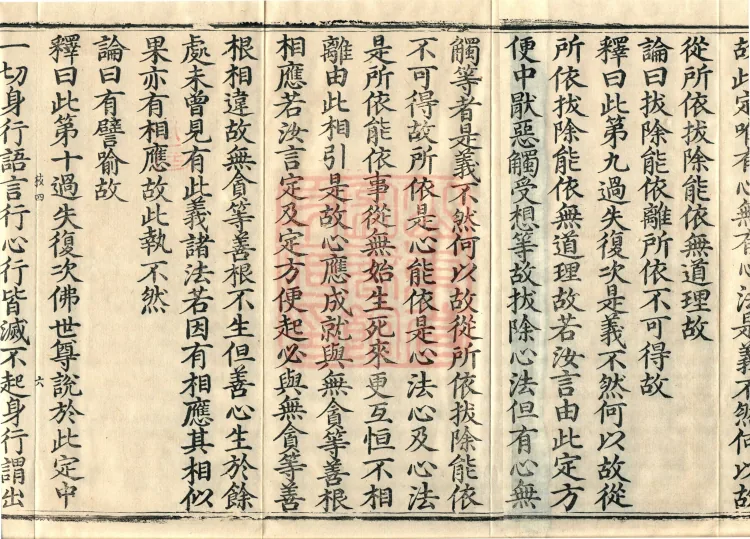 故此定唯有心無有心法是義不然何以故
從所依拔除能依無道理故
論曰拔除能依離所依不可得故
釋曰此第九過失復次是義不然何以故從
所依拔除能依無道理故若汝言由此定方
便中猒惡觸受想等故拔除心法但有心無
觸等者是義不然何以故從所依拔除能依
不可得故所依是心能依是心法心及心法
是所依能依事從無始生死來更互恒不相
離由此相引是故心應成就與無貪等善根
相應若汝言定及定方便起必與無貪等善
根相違故無貪等善根不生但善心生於餘
處未曾見有此義諸法若因有相應其相似
果亦有相應故此執不然
論曰有譬喻故
釋曰此第十過失復次佛世尊說於此定中
六
一切身行語言行心行皆滅不起身行謂出